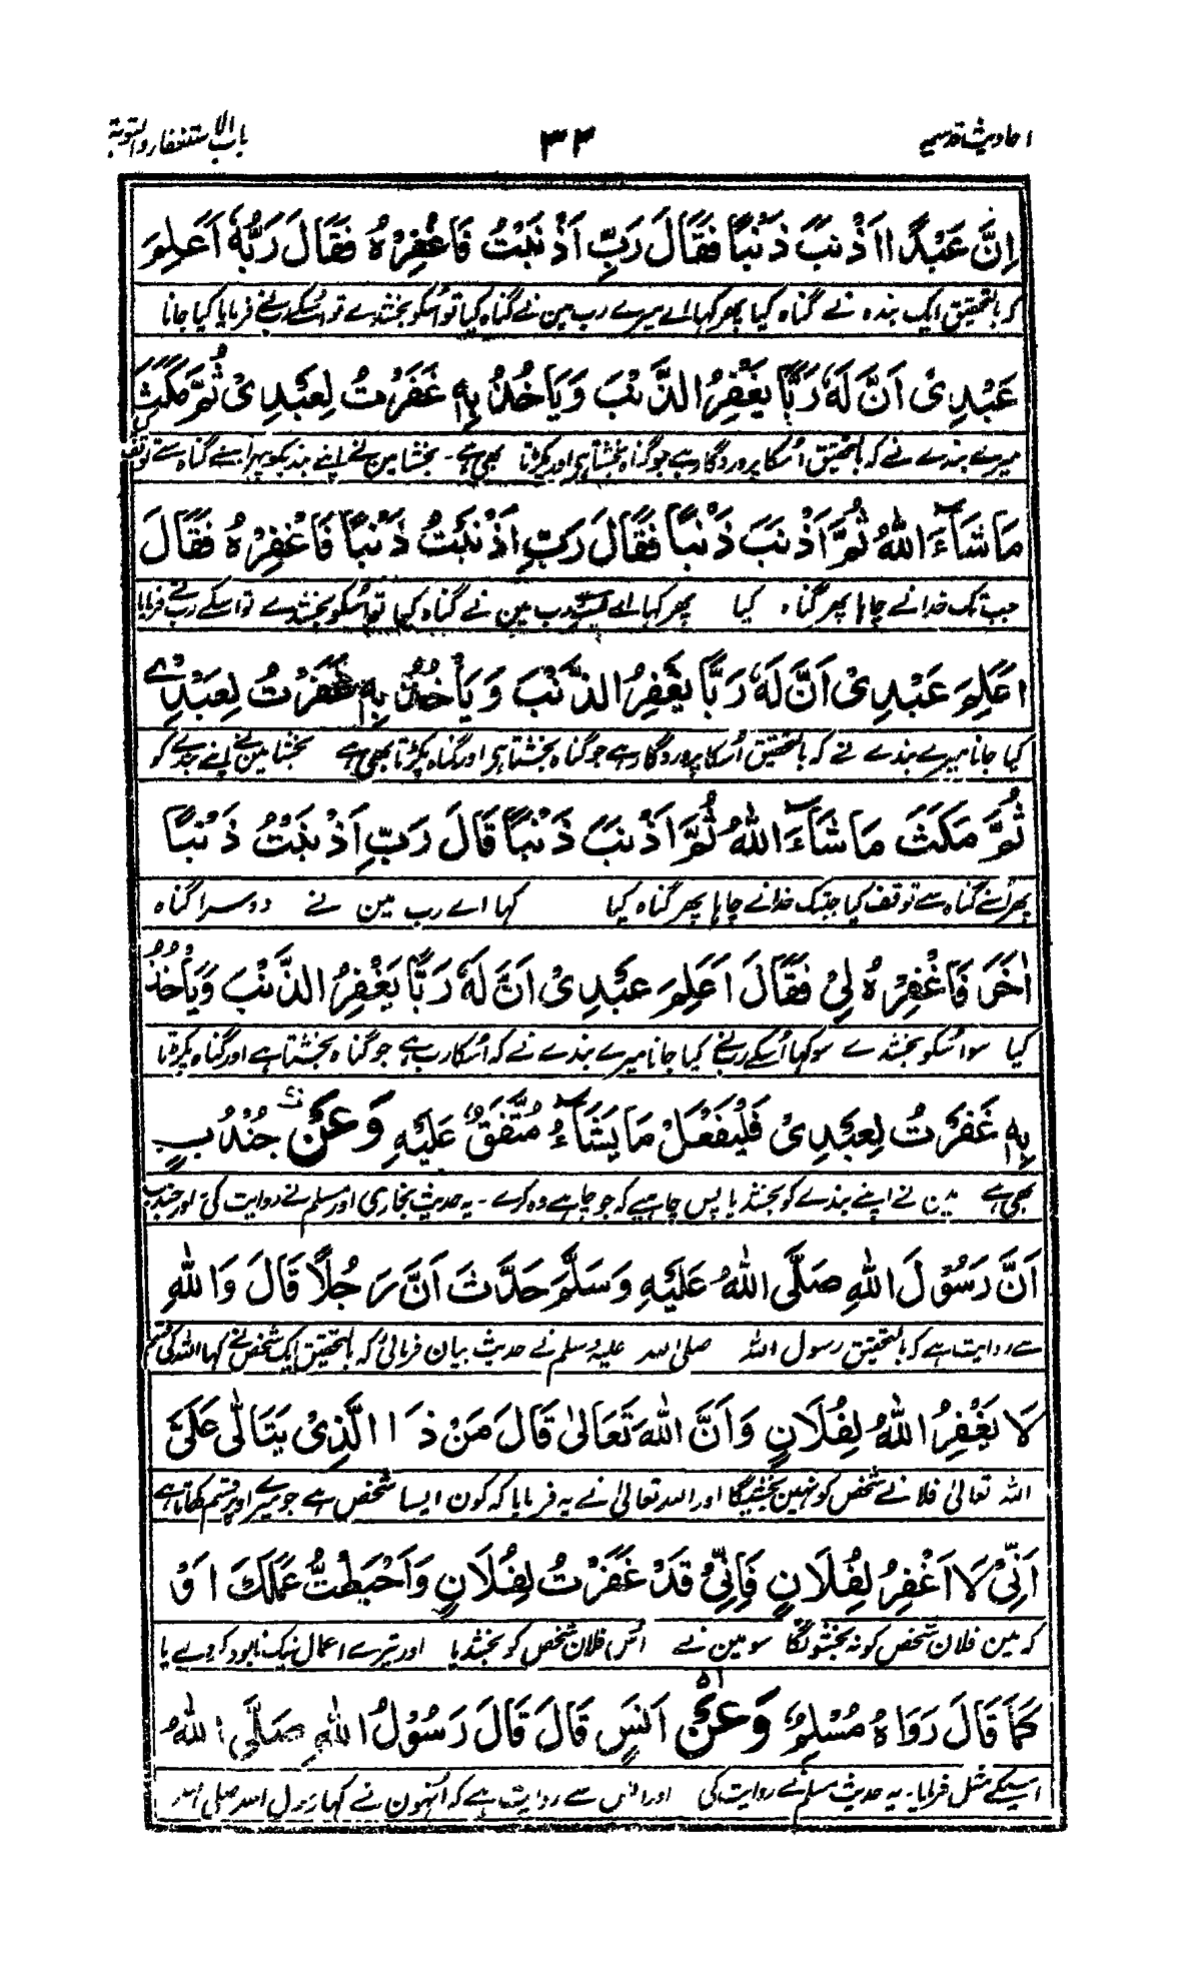 احادیث قدسیہ ۳۳ باب الاستغفار والتوبۃ
اِنَّ عَبْدًا اَذْنَبَ ذَنْبًا فَقَالَ رَبِّ اَذْنَبْتُ فَاغْفِرْهُ فَقَالَ رَبُّهٗ اَعَلِمَ
کہ بالتحقیق ایک بندہ نے گناہ کیا پھر کہا اے میرے رب مین نے گناہ کیا تو اُسکو بخشدے تو اُسکے رب نے فرمایا کیا جانا
عَبْدِیْ اَنَّ لَهٗ رَبًّا یَغْفِرُ الذَّنْبَ وَیَاْخُذُ بِهٖ غَفَرْتُ لِعَبْدِیْ ثُمَّ مَکَثَ
میرے بندے نے کہ بالتحقیق اُسکا پروردگار ہے جو گناہ بخشتا ہے اور پکڑتا بھی ہے۔ بخشا مین نے اپنے بندیکو پھر اسنے گناہ سے توقف
مَا شَآءَ اللهُ ثُمَّ اَذْنَبَ ذَنْبًا فَقَالَ رَبِّ اَذْنَبْتُ ذَنْبًا فَاغْفِرْهُ فَقَالَ
جب تک خدا نے چاہا پھر گناہ کیا پھر کہا اے میرے رب مین نے گناہ کیا تو اُسکو بخشدے تو اسکے رب نے فرمایا
اَعَلِمَ عَبْدِیْ اَنَّ لَهٗ رَبًّا یَغْفِرُ الذَّنْبَ وَیَاْخُذُ بِهٖ غَفَرْتُ لِعَبْدِیْ
کیا جانا میرے بندے نے کہ بالتحقیق اُسکا پروردگار ہے جو گناہ بخشتا ہے اور گناہ پکڑتا بھی ہے بخشا مین نے اپنے بندے کو
ثُمَّ مَکَثَ مَا شَآءَ اللهُ ثُمَّ اَذْنَبَ ذَنْبًا قَالَ رَبِّ اَذْنَبْتُ ذَنْبًا
پھر اُسنے گناہ سے توقف کیا جبتک خدا نے چاہا پھر گناہ کیا کہا اے رب مین نے دوسرا گناہ
اٰخَرَ فَاغْفِرْهُ لِیْ فَقَالَ اَعَلِمَ عَبْدِیْ اَنَّ لَهٗ رَبًّا یَغْفِرُ الذَّنْبَ وَیَاْخُذُ
کیا سو اُسکو بخشدے سو کہا اُسکے رب نے کیا جانا میرے بندے نے کہ اُسکا رب ہے جو گناہ بخشتا ہے اور گناہ پکڑتا
بِهٖ غَفَرْتُ لِعَبْدِیْ فَلْیَفْعَلْ مَا یَشَآءُ مُتَّفَقٌ عَلَیْهِ وَعَنْ جُنْدُبٍ
بھی ہے مین نے اپنے بندے کو بخشدیا پس چاہیے کہ جو چاہے وہ کرے۔ یہ حدیث بخاری اور مسلم نے روایت کی اور جندب
اَنَّ رَسُوْلَ اللهِ صَلَّی اللهُ عَلَیْهِ وَسَلَّمَ حَدَّثَ اَنَّ رَجُلًا قَالَ وَاللهِ
سے روایت ہے کہ بالتحقیق رسول اللہ صلی اللہ علیہ وسلم نے حدیث بیان فرمائی کہ بالتحقیق ایک شخص نے کہا اللہ کی قسم
لَا یَغْفِرُ اللهُ لِفُلَانٍ وَاَنَّ اللهَ تَعَالٰی قَالَ مَنْ ذَا الَّذِیْ یَتَاَلّٰی عَلَیَّ
اللہ تعالیٰ فلانے شخص کو نہین بخشیگا اور اللہ تعالیٰ نے یہ فرمایا کہ کون ایسا شخص ہے جو میرے اوپر قسم کھاتا ہے
اَنِّیْ لَا اَغْفِرُ لِفُلَانٍ فَاِنِّیْ قَدْ غَفَرْتُ لِفُلَانٍ وَاَحْبَطْتُ عَمَلَکَ اَوْ
کہ مین فلان شخص کو نہ بخشونگا سو مین نے اُس فلان شخص کو بخشدیا اور تیرے اعمال نیک نابود کر دیے یا
کَمَا قَالَ رَوَاهُ مُسْلِمٌ وَعَنْ اَنَسٍ قَالَ قَالَ رَسُوْلُ اللهِ صَلَّی اللهُ
اسیکے مثل فرمایا۔ یہ حدیث مسلم نے روایت کی اور انس سے روایت ہے کہ اُنہون نے کہا رسول اللہ صلی اللہ